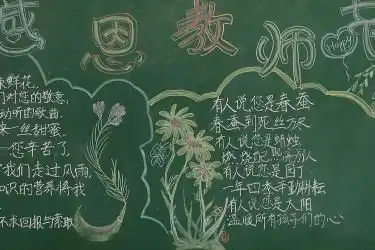 感恩教师节
Happy
鲜花,
对您的敬意,
动听的歌曲,
来一丝甜蜜.
您辛苦了,
我们走过风雨,
知识的营养将我
不求回报与索取
有人说您是春蚕
春蚕到死丝方尽
有人说您是蜡烛
燃烧自己照亮万人
有人说您是园丁
一年四季辛勤耕耘
有人说您是太阳
温暖所有孩子们的心